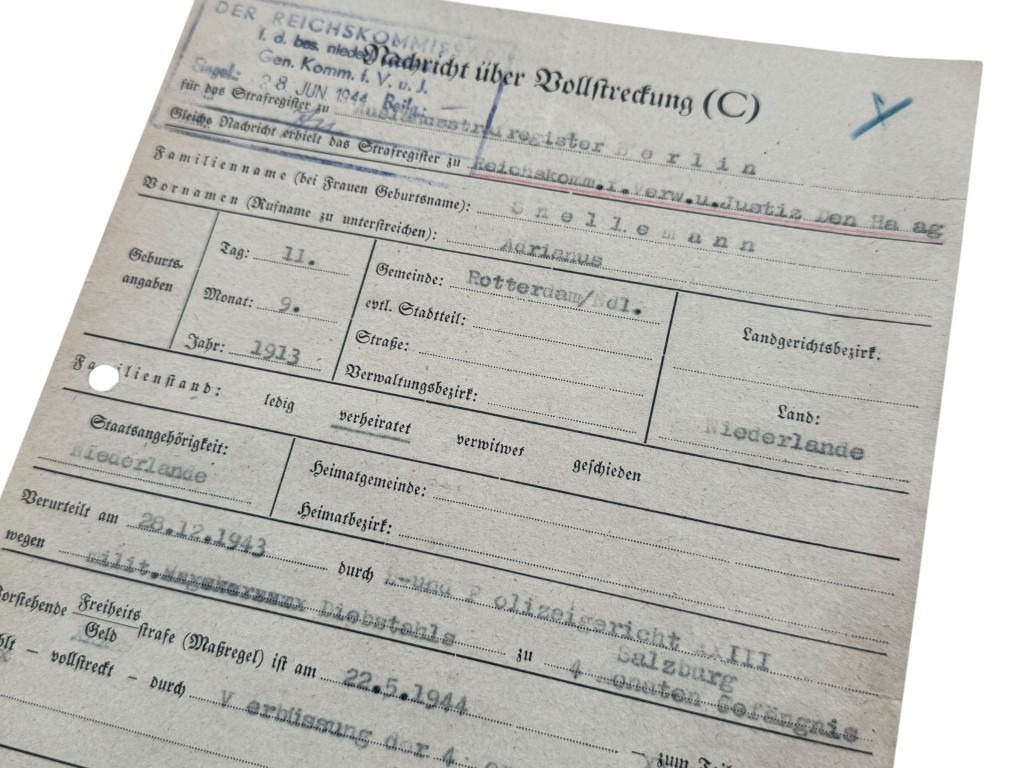 DER REICHSKOMMISSAR
f. d. bes. niederl.
Gen. Komm. f. V. u. J.
Eingel: 28 JUN 1944 Beilg: —
Nachricht über Vollstreckung (C)
für das Strafregister zu Auslandsstrafregister Berlin
Gleiche Nachricht erhielt das Strafregister zu Reichskomm.f.Verw.u.Justiz Den Haag
Familienname (bei Frauen Geburtsname): Snellemann
Vornamen (Rufname zu unterstreichen): Adrianus
Geburts-
angaben
Tag: 11.
Monat: 9.
Jahr: 1913
Gemeinde: Rotterdam/Ndl.
evtl. Stadtteil:
Straße:
Verwaltungsbezirk:
Landgerichtsbezirk.
Land:
Niederlande
Familienstand: ledig verheiratet verwitwet geschieden
Staatsangehörigkeit:
Niederlande
Heimatgemeinde:
Heimatbezirk:
Verurteilt am 28.12.1943 durch und Polizeigericht III
Salzburg
wegen milit. Diebstahls zu 4 Monaten Gefängnis
Vorstehende Freiheits
Geld strafe (Maßregel) ist am 22.5.1944 – zum Teil
– vollstreckt – durch Verbüssung der 4